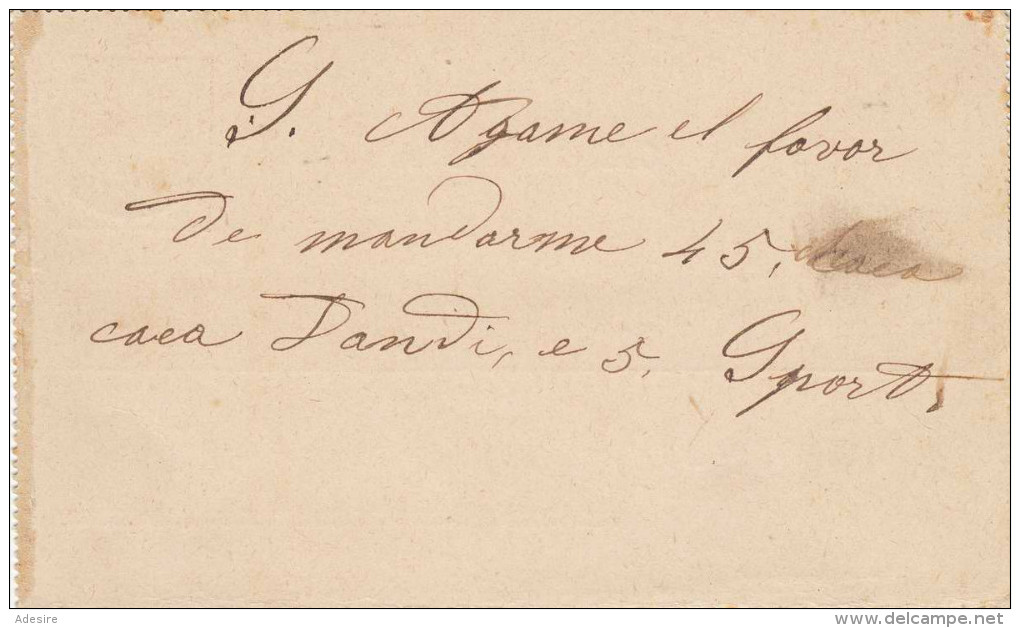 S. Agame el favor
de mandarme 45,
caea Dandi, e 5. Sport.
Adesire
delcampe.net